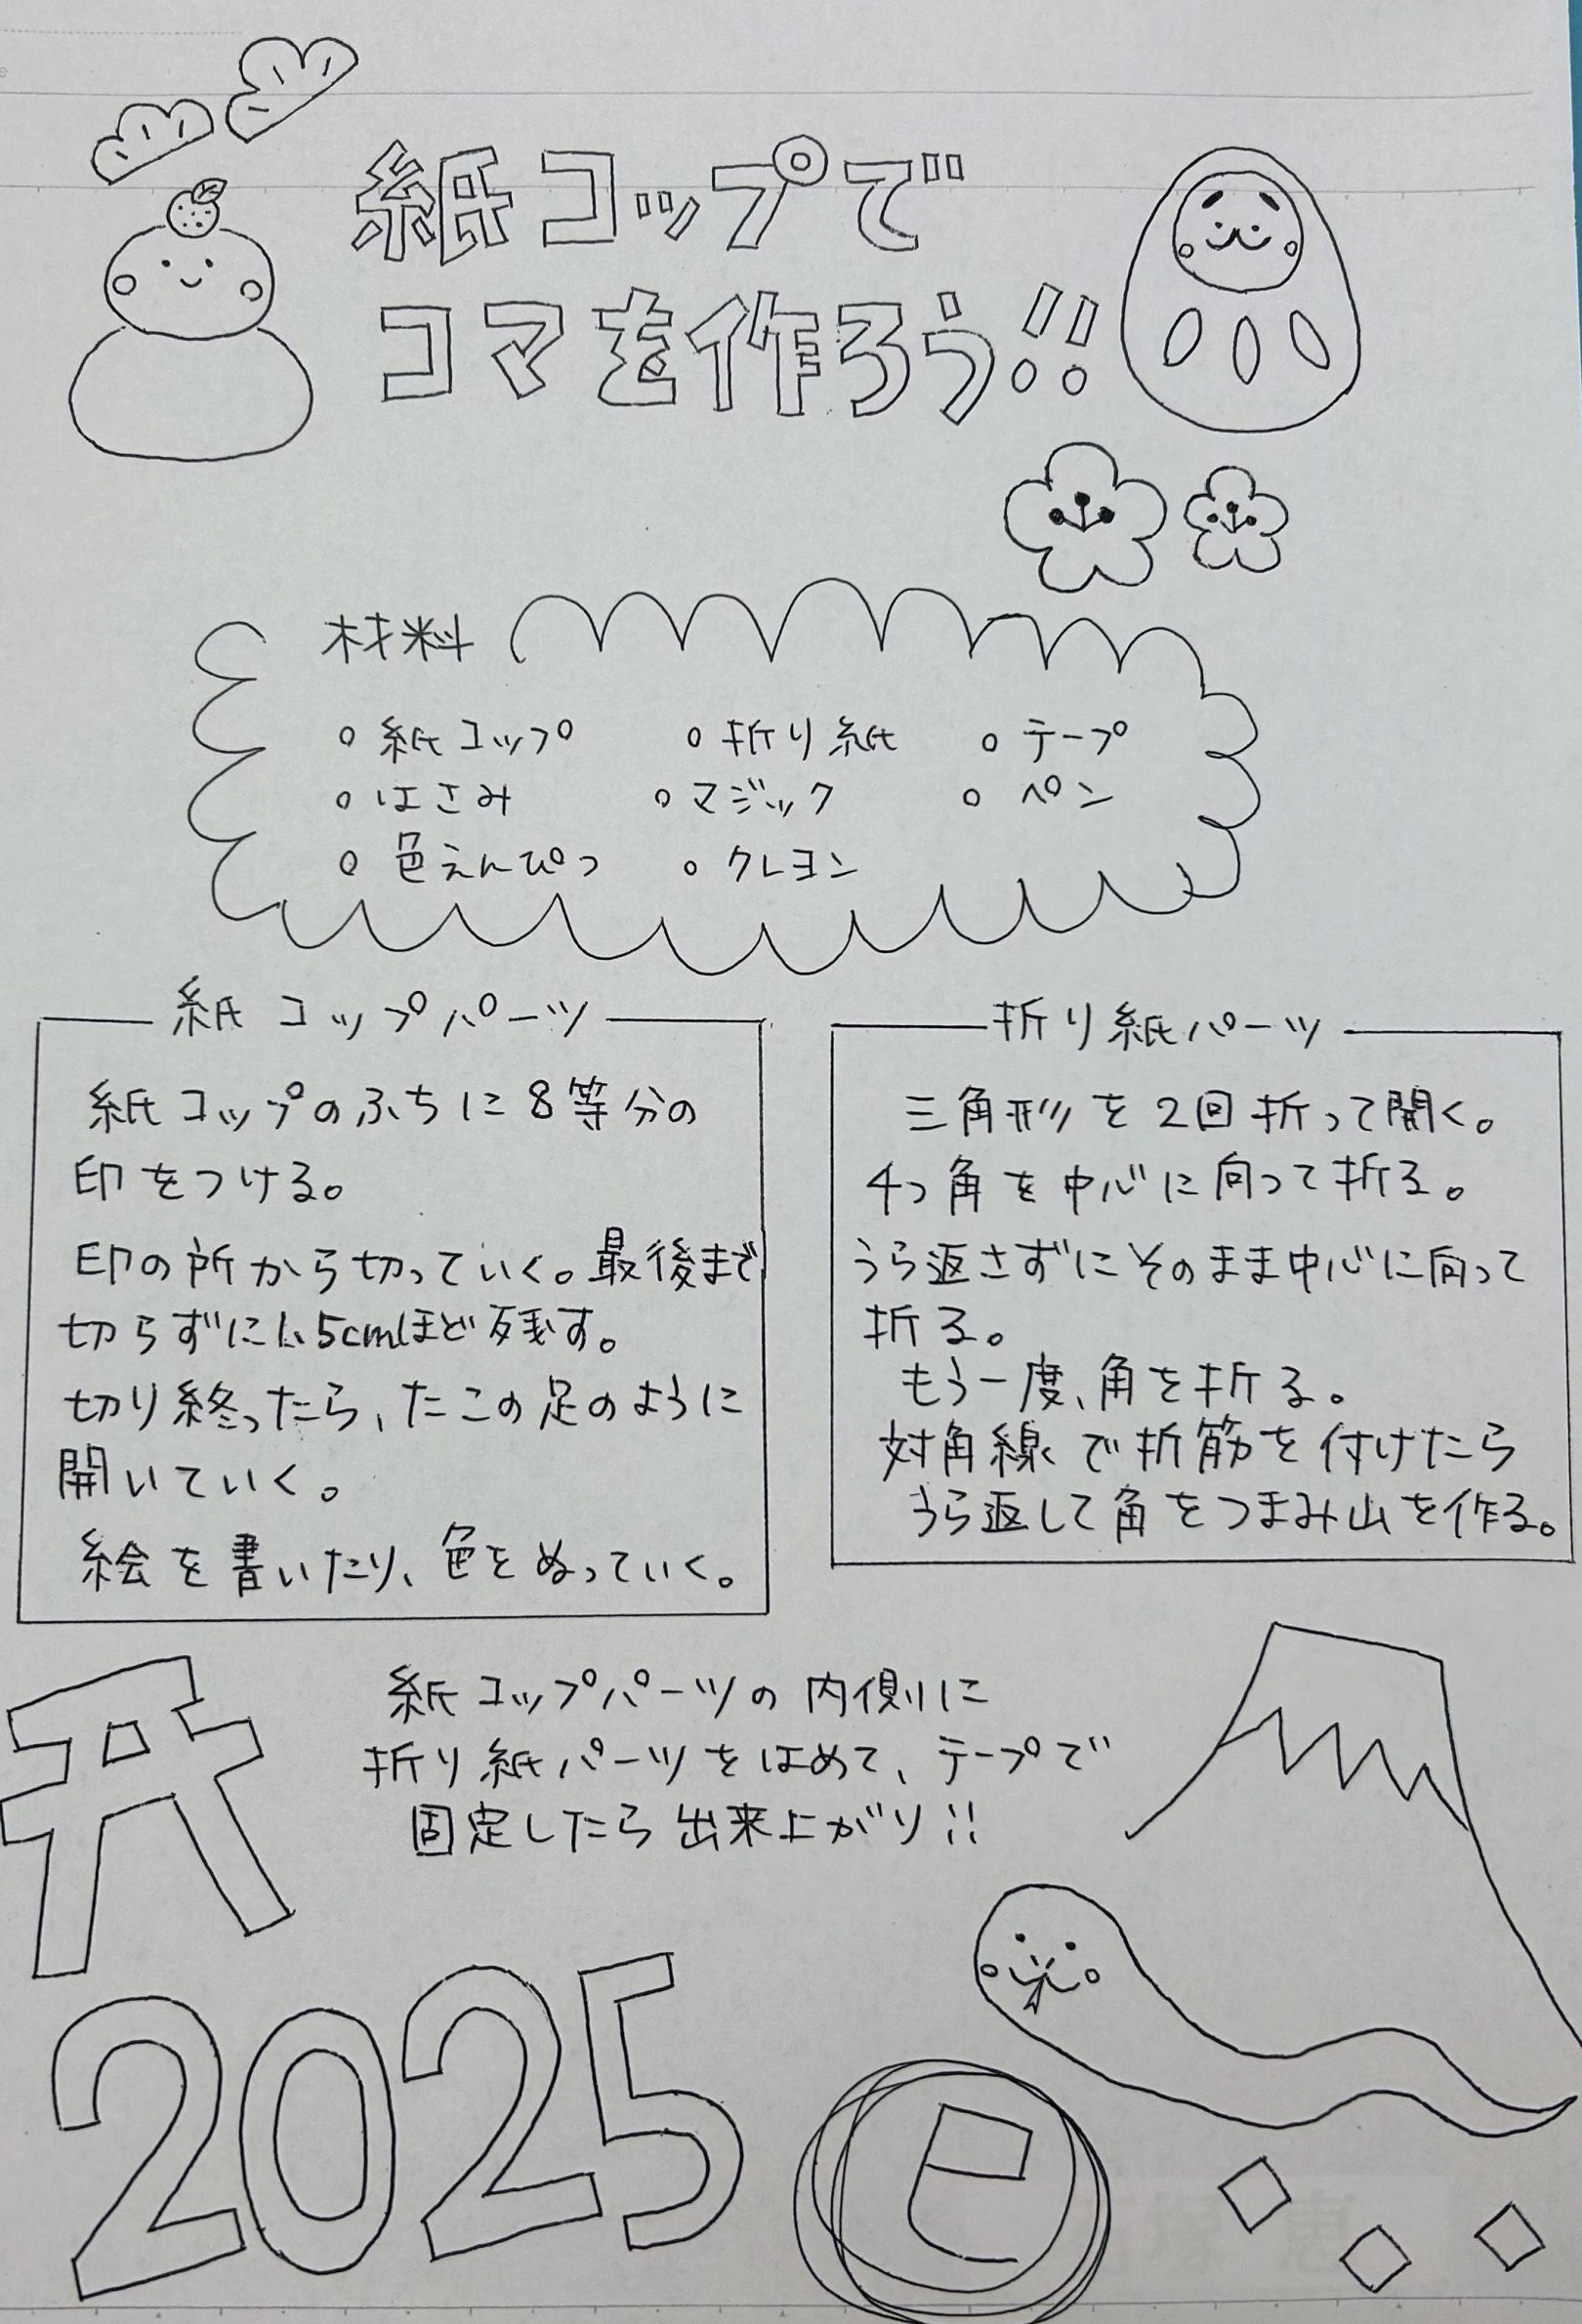 紙コップで
コマを作ろう!!
材料
○ 紙コップ ○ 折り紙 ○ テープ
○ はさみ ○ マジック ○ ペン
○ 色えんぴつ ○ クレヨン
紙コップパーツ
紙コップのふちに8等分の
印をつける。
印の所から切っていく。最後まで
切らずに1.5cmほど残す。
切り終ったら、たこの足のように
開いていく。
絵を書いたり、色をぬっていく。
折り紙パーツ
三角形を2回折って開く。
4つ角を中心に向って折る。
うら返さずにそのまま中心に向って
折る。
もう一度、角を折る。
対角線で折筋を付けたら
うら返して角をつまみ山を作る。
紙コップパーツの内側に
折り紙パーツをはめて、テープで
固定したら出来上がり!!
2025
巳